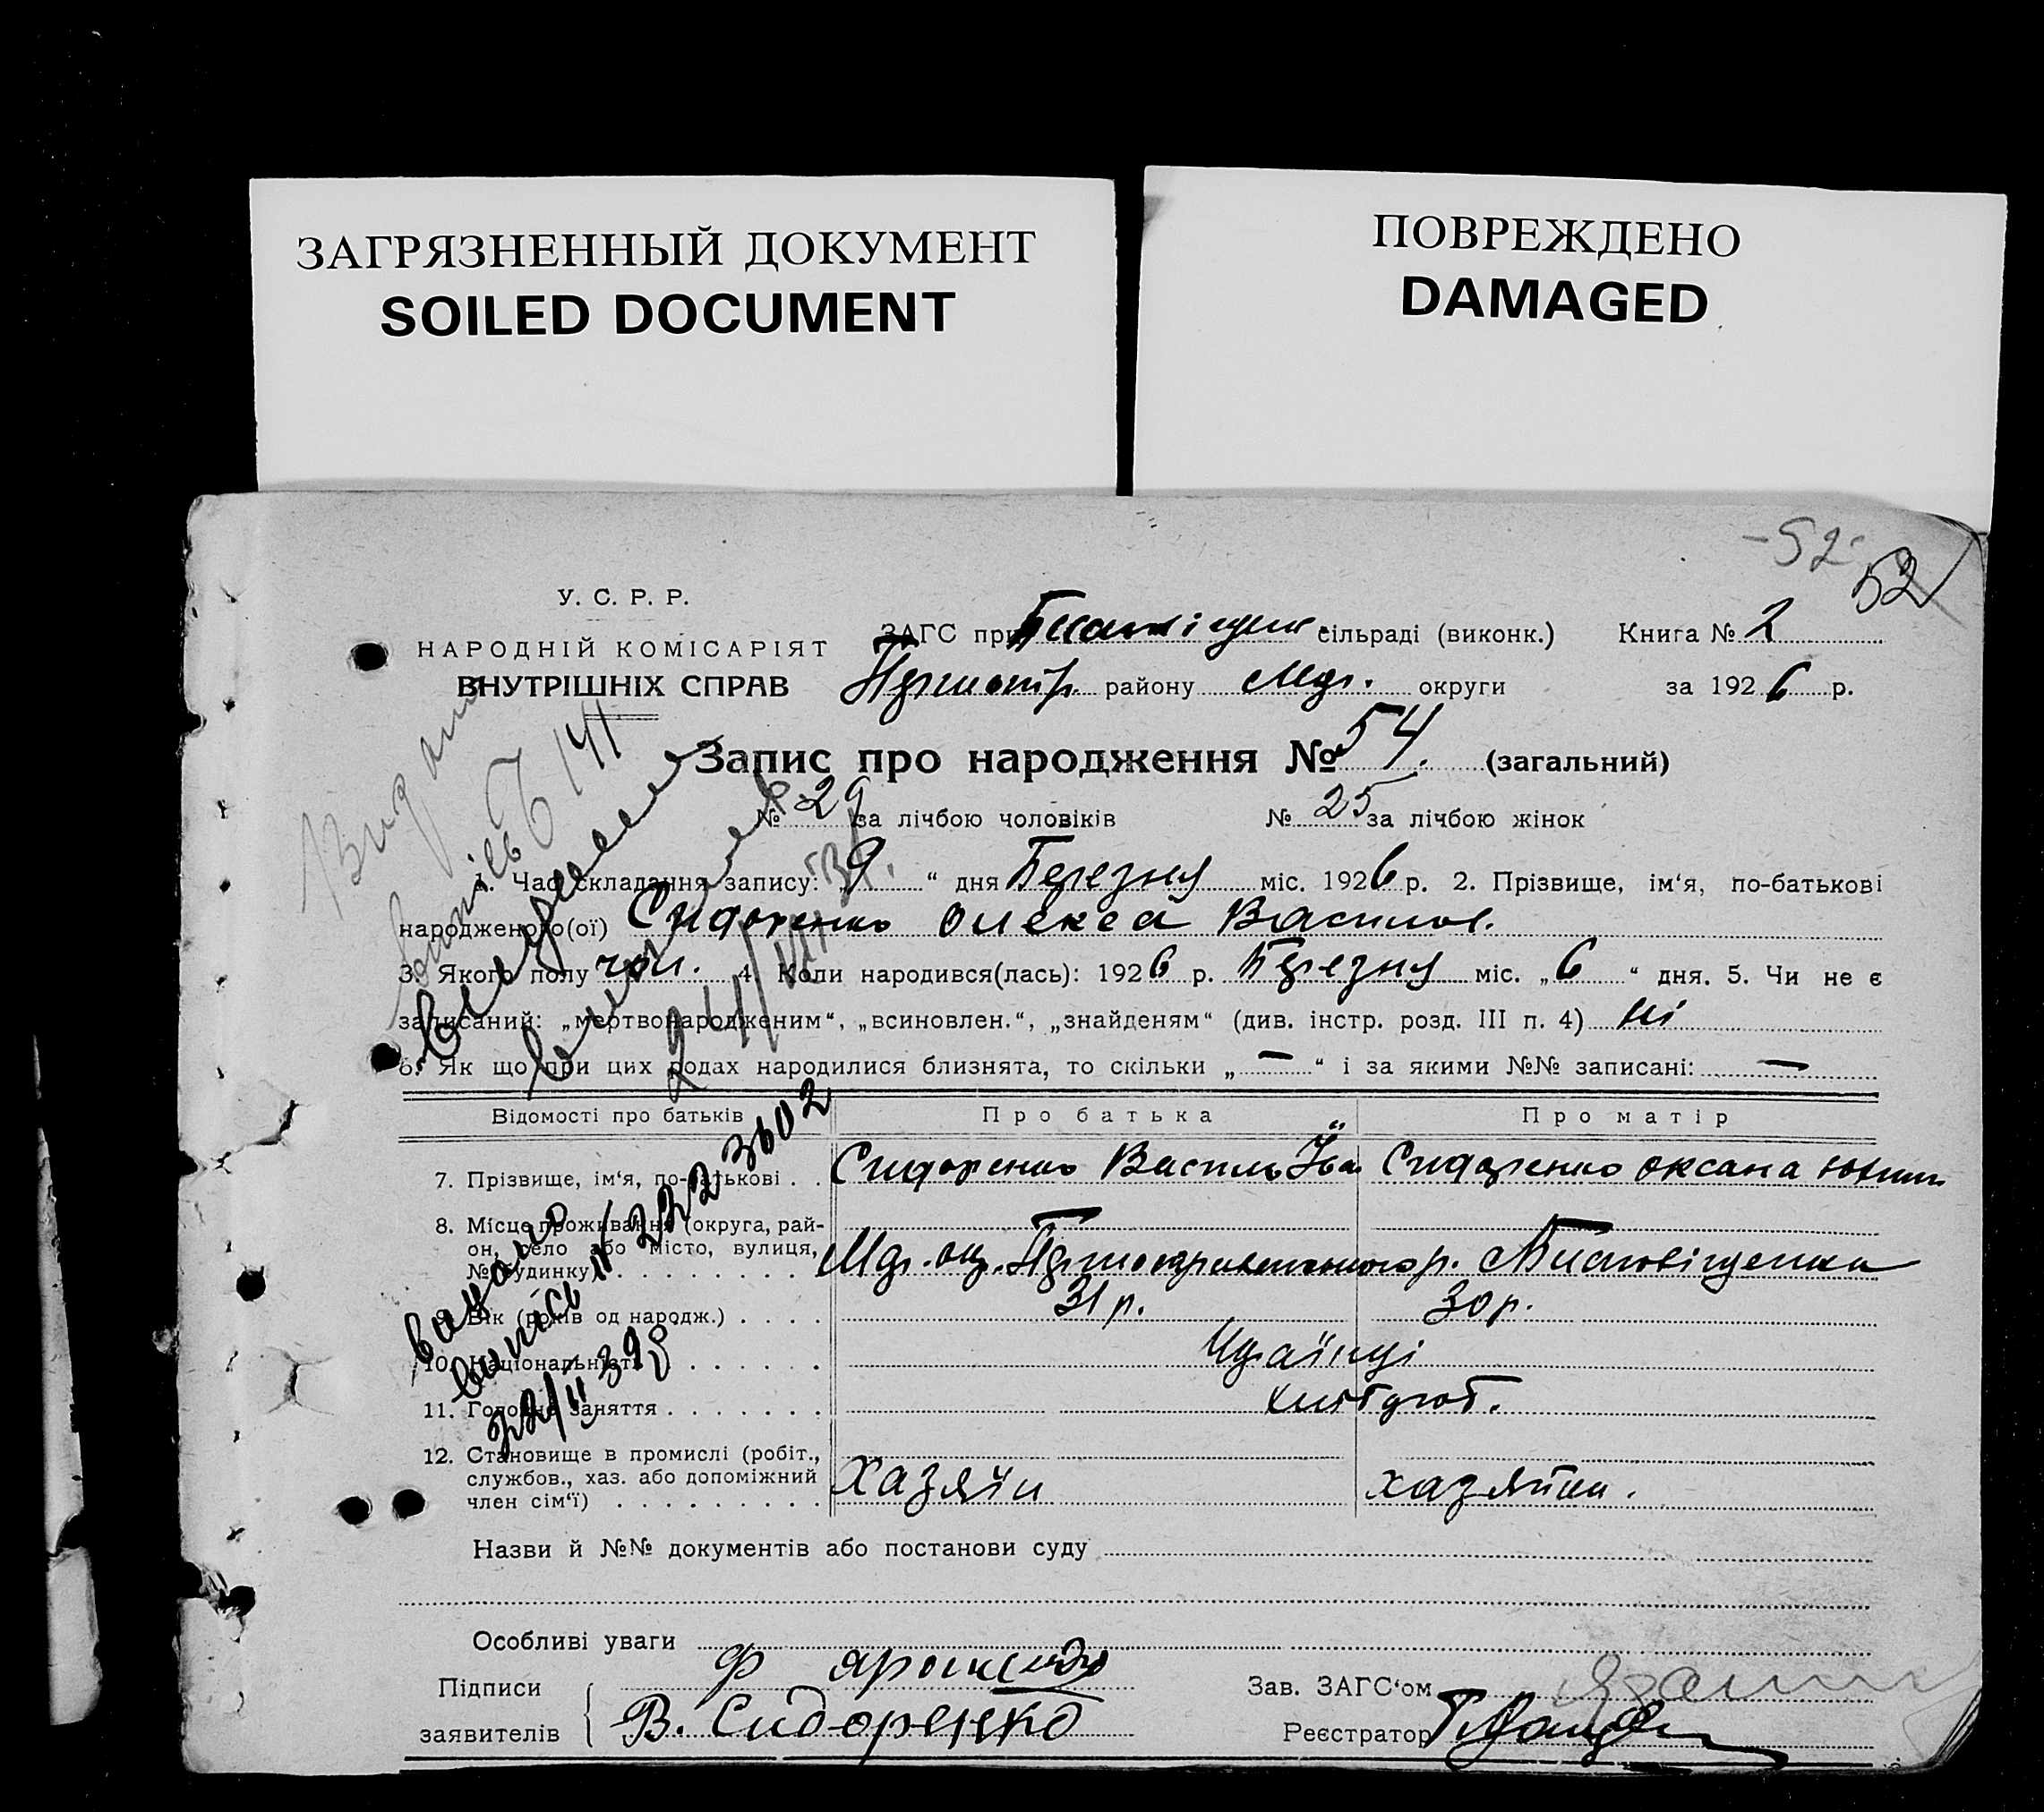 ЗАГРЯЗНЕННЫЙ ДОКУМЕНТ
SOILED DOCUMENT
ПОВРЕЖДЕНО
DAMAGED
-52-
52
У. С. Р. Р.
НАРОДНІЙ КОМІСАРІЯТ
ВНУТРІШНІХ СПРАВ
ЗАГС при сільраді (виконк.) Книга № 2
району округи за 1926 р.
Запис про народження № 54. (загальний)
№ 29 за лічбою чоловіків № 25 за лічбою жінок
1. Час складання запису: „9“ дня Березня міс. 1926 р. 2. Прізвище, ім‘я, по-батькові
народженого(ої) Сидоренко Олексій Василов.
3. Якого полу чол. 4. Коли народився(лась): 1926 р. Березня міс. „6“ дня. 5. Чи не є
записаний: „мертвонародженим“, „всиновлен.“, „знайденям“ (див. інстр. розд. III п. 4) ні
6. Як що при цих родах народилися близнята, то скільки „—“ і за якими №№ записані: —
Відомості про батьків Про батька Про матір
7. Прізвище, ім‘я, по-батькові . . Сидоренко Василь Іва Сидоренко Оксана
8. Місце проживання (округа, рай-
он, село або місто, вулиця,
№ будинку)
9. Вік (років од народж.) . . . . 31 р. 30 р.
10. Національність Українці
11. Головне заняття хлібороб.
12. Становище в промислі (робіт.,
службов., хаз. або допоміжний
член сім‘ї) Хазяїн хазяйка.
Назви й №№ документів або постанови суду
Особливі уваги
Підписи Ф
заявителів В. Сидоренко
Зав. ЗАГС‘ом
Реєстратор
Видано
24/VII
видано
випись 222 3602
22/II 39